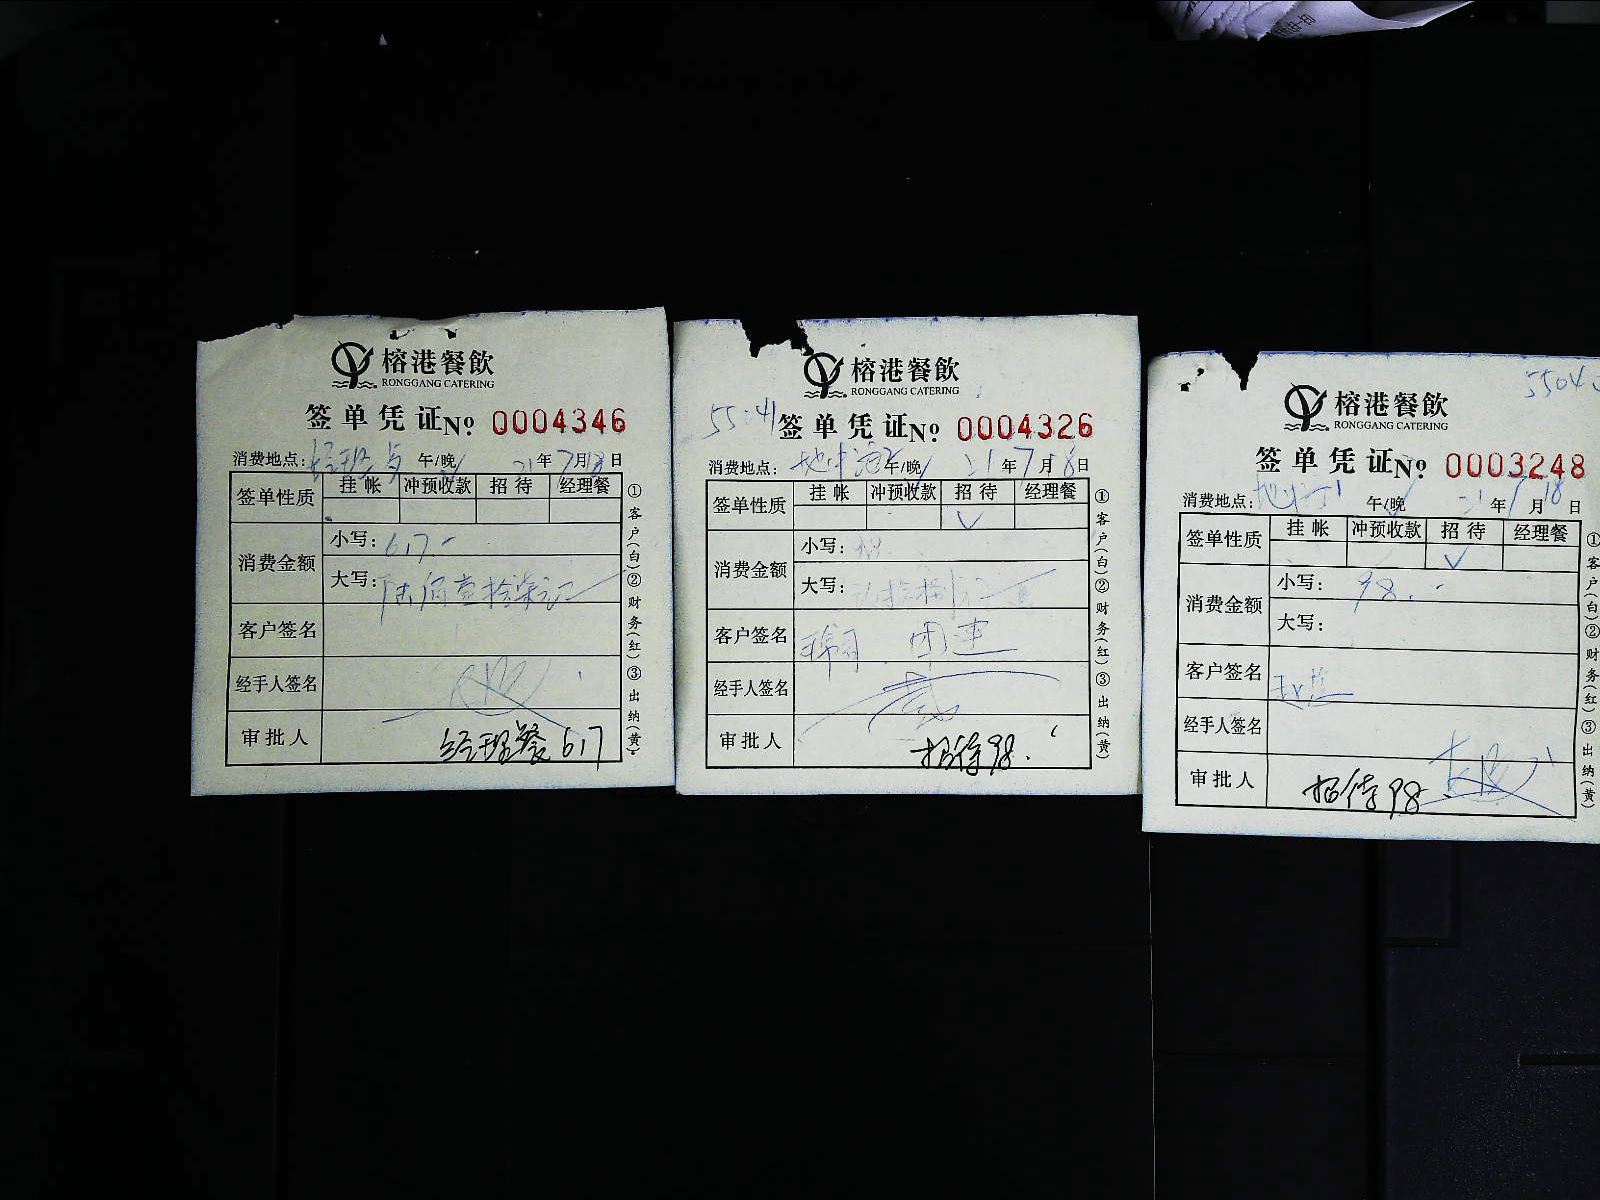 榕港餐飲
RONGGANG CATERING
签单凭证 No 0004346
消费地点： 午/晚 21年7月18日
签单性质 挂帐 冲预收款 招待 经理餐
消费金额 小写：617.-
大写：陆佰壹拾柒元
客户签名
经手人签名
审批人 经理餐 617
①客户(白)②财务(红)③出纳(黄)
榕港餐飲
RONGGANG CATERING
签单凭证 No 0004326
消费地点： 午/晚 21年7月18日
签单性质 挂帐 冲预收款 招待 经理餐
消费金额 小写：
大写：
客户签名 团建
经手人签名
审批人 招待98.
①客户(白)②财务(红)③出纳(黄)
榕港餐飲
RONGGANG CATERING
签单凭证 No 0003248
消费地点： 午/晚 21年7月18日
签单性质 挂帐 冲预收款 招待 经理餐
消费金额 小写：98.-
大写：
客户签名
经手人签名
审批人 招待98.
①客户(白)②财务(红)③出纳(黄)